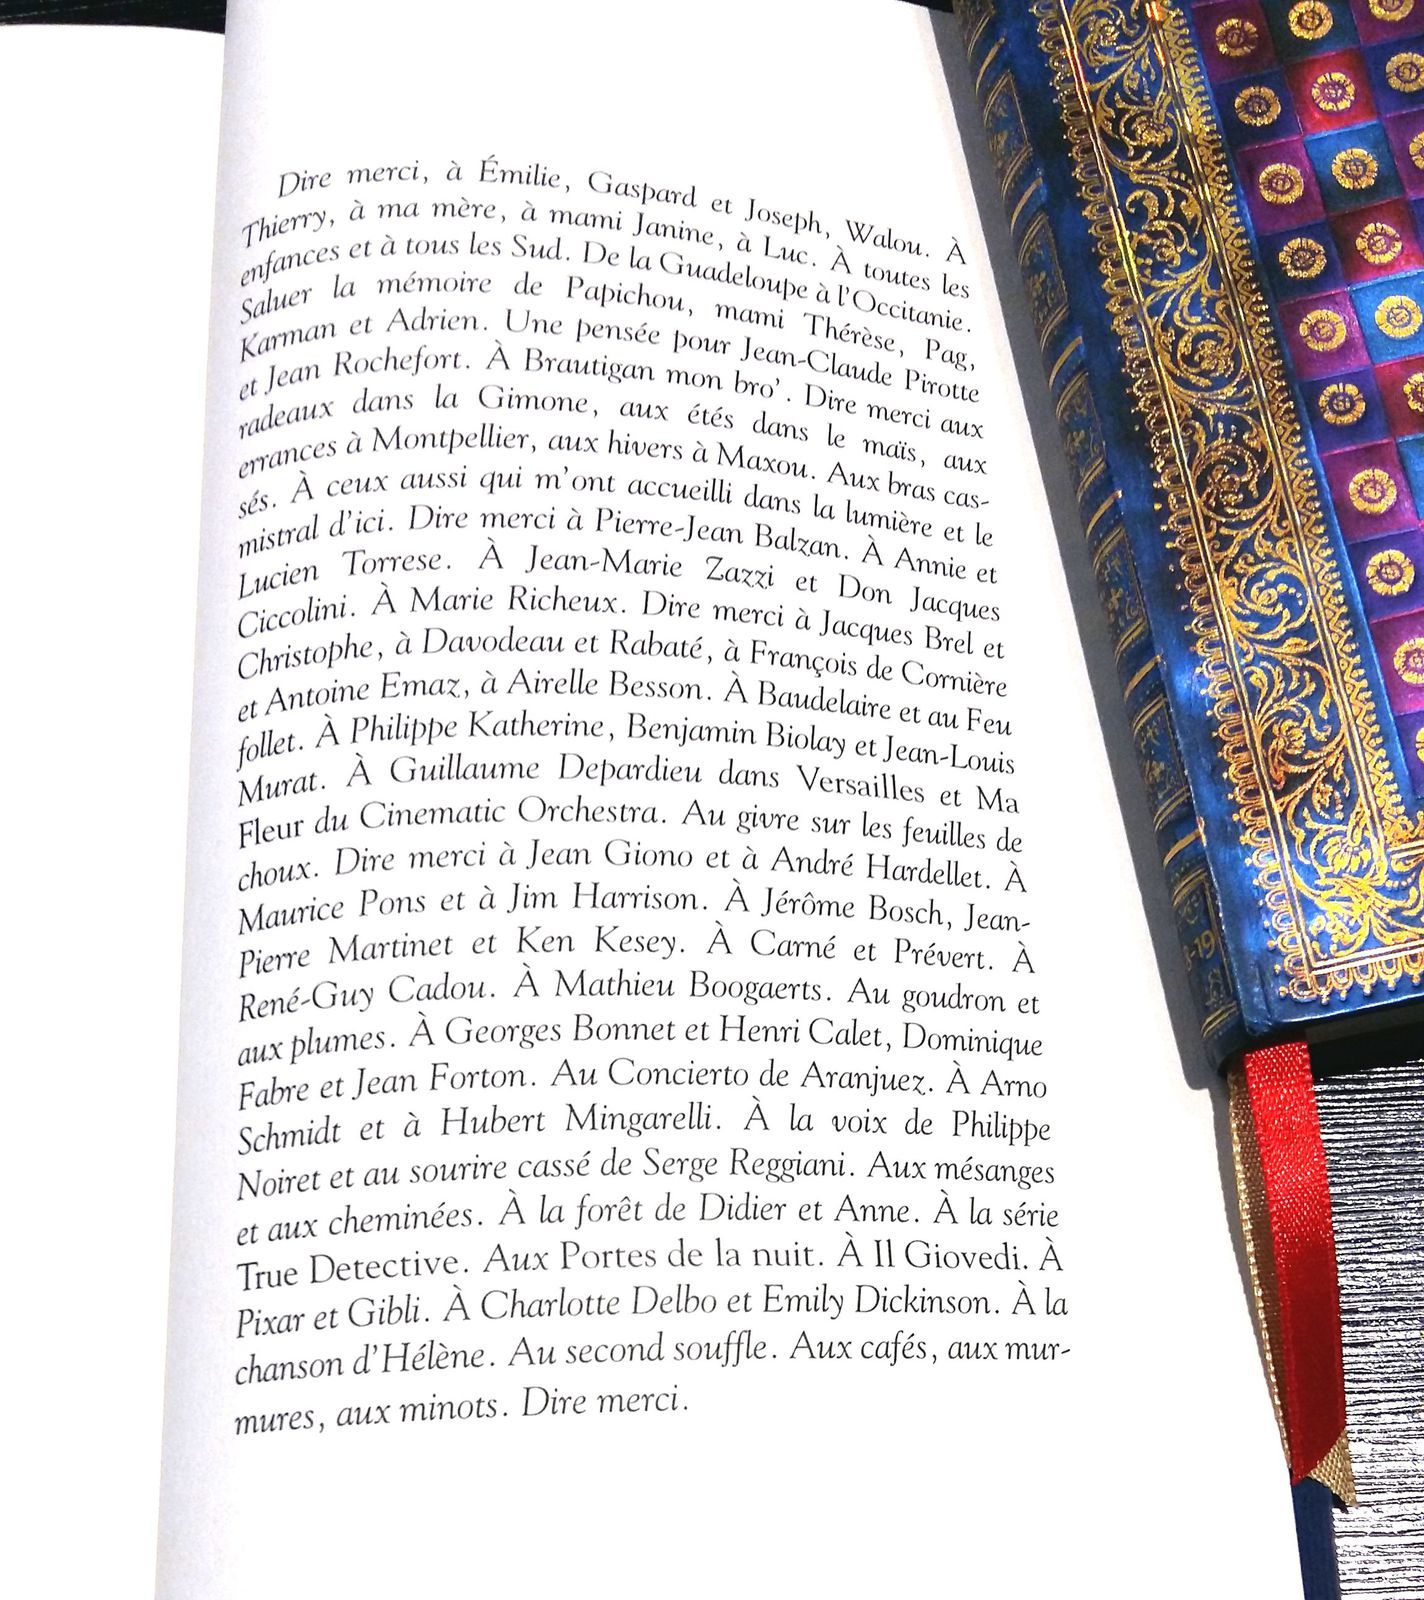 Dire merci, à Émilie, Gaspard et Joseph, Walou. À
Thierry, à ma mère, à mami Janine, à Luc. À toutes les
enfances et à tous les Sud. De la Guadeloupe à l'Occitanie.
Saluer la mémoire de Papichou, mami Thérèse, Pag,
Karman et Adrien. Une pensée pour Jean-Claude Pirotte
et Jean Rochefort. À Brautigan mon bro'. Dire merci aux
radeaux dans la Gimone, aux étés dans le maïs, aux
errances à Montpellier, aux hivers à Maxou. Aux bras cas-
sés. À ceux aussi qui m'ont accueilli dans la lumière et le
mistral d'ici. Dire merci à Pierre-Jean Balzan. À Annie et
Lucien Torrese. À Jean-Marie Zazzi et Don Jacques
Ciccolini. À Marie Richeux. Dire merci à Jacques Brel et
Christophe, à Davodeau et Rabaté, à François de Cornière
et Antoine Emaz, à Airelle Besson. À Baudelaire et au Feu
follet. À Philippe Katherine, Benjamin Biolay et Jean-Louis
Murat. À Guillaume Depardieu dans Versailles et Ma
Fleur du Cinematic Orchestra. Au givre sur les feuilles de
choux. Dire merci à Jean Giono et à André Hardellet. À
Maurice Pons et à Jim Harrison. À Jérôme Bosch, Jean-
Pierre Martinet et Ken Kesey. À Carné et Prévert. À
René-Guy Cadou. À Mathieu Boogaerts. Au goudron et
aux plumes. À Georges Bonnet et Henri Calet, Dominique
Fabre et Jean Forton. Au Concierto de Aranjuez. À Arno
Schmidt et à Hubert Mingarelli. À la voix de Philippe
Noiret et au sourire cassé de Serge Reggiani. Aux mésanges
et aux cheminées. À la forêt de Didier et Anne. À la série
True Detective. Aux Portes de la nuit. À Il Giovedi. À
Pixar et Gibli. À Charlotte Delbo et Emily Dickinson. À la
chanson d'Hélène. Au second souffle. Aux cafés, aux mur-
mures, aux minots. Dire merci.